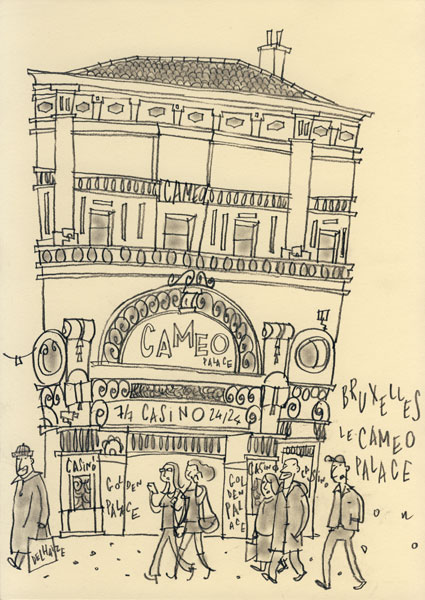 CAMEO
CAMEO
PALACE
7/7 CASINO 24/24
CASINO
GOLDEN
PALACE
GOL
DEN
PAL
ACE
CASINO
CASINO
BRUXELLES
LE CAMEO
PALACE
DELHAIZE